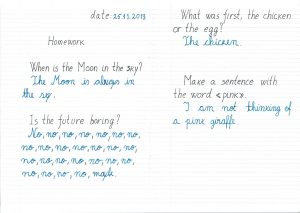 date: 25.11.2013
Homework
When is the Moon in the sky?
The Moon is always in
the sky.
Is the future boring?
No, no, no, no, no, no, no,
no, no, no, no, no, no, no,
no, no, no, no, no, no, no,
no, no, no, no, maybe.
What was first, the chicken
or the egg?
The chicken.
Make a sentence with
the word «pink».
I am not thinking of
a pink giraffe